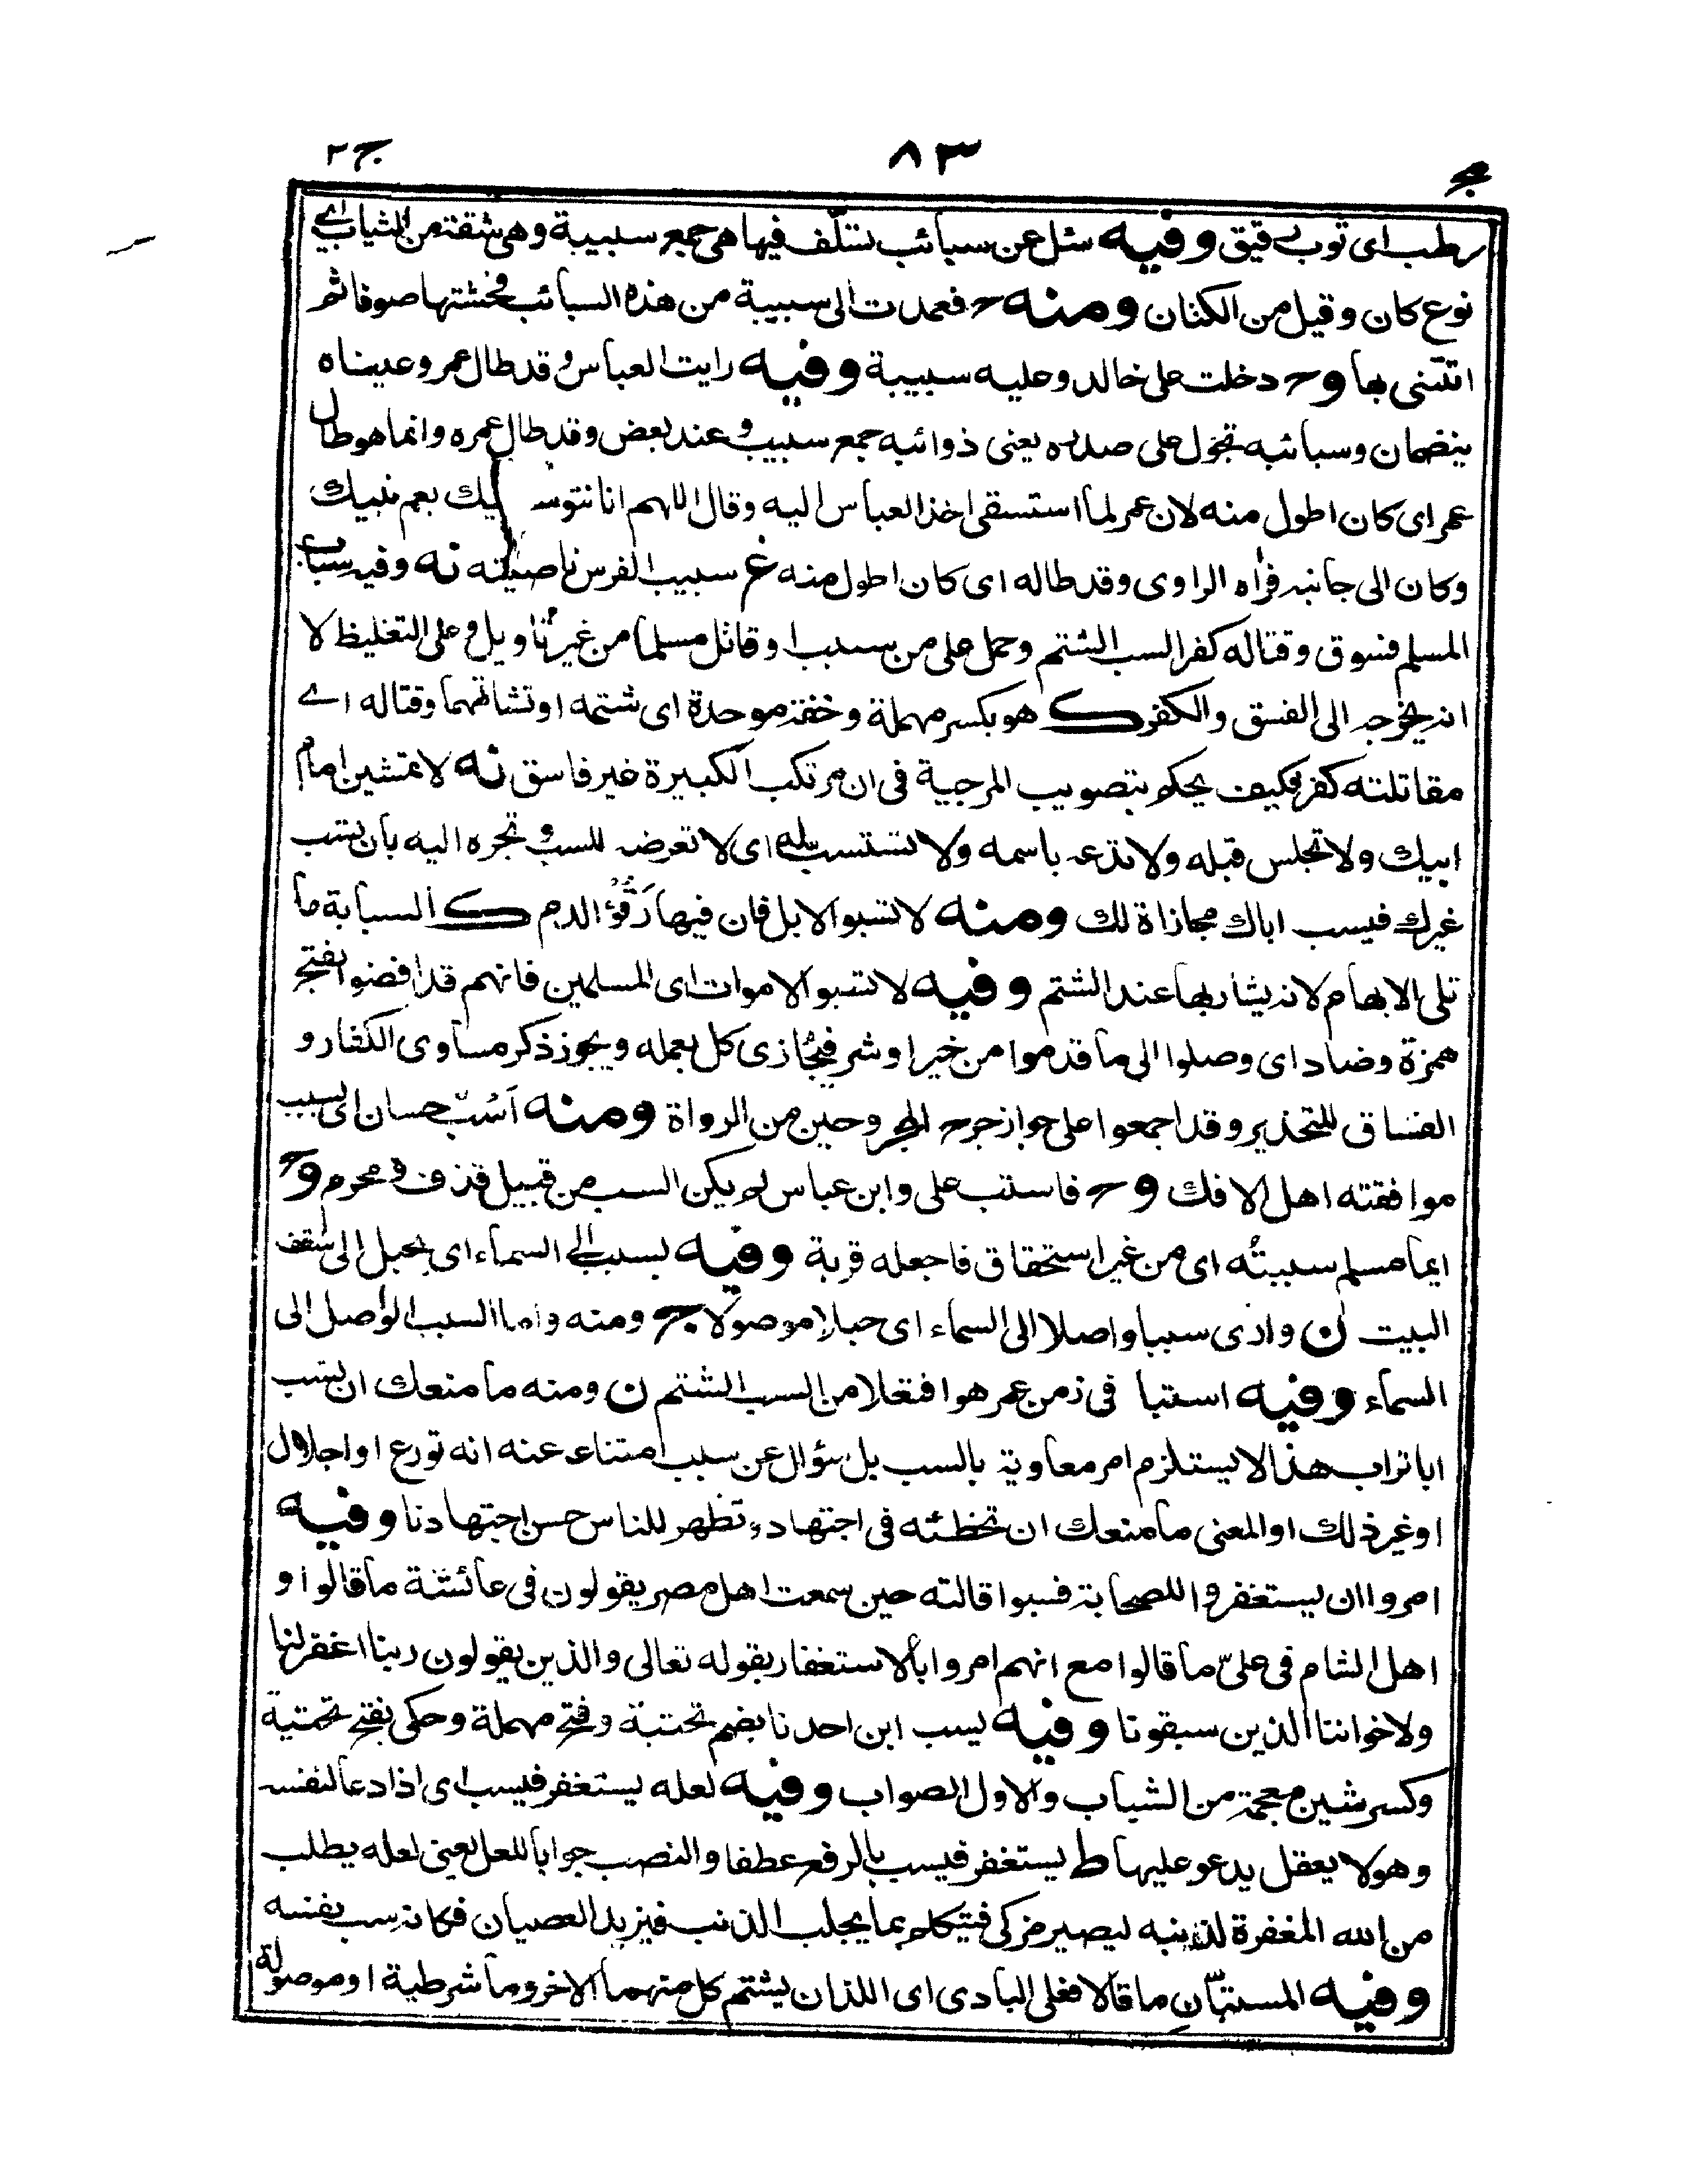 مج ٨٣ ج٢
رطب اى ثوب رقيق وفيه سئل عن سبائب تسلّف فيها هى جمع سبيبة وهى شقة من الثياب اى
نوع كان وقيل من الكتان ومنه ح فعمدت الى سبيبة من هذه السبائب فحشتها صوفا ثم
اتتنى بها وح دخلت على خالد وعليه سبيبة وفيه رايت العباس وقد طال عمر وعيناه
ينضمان وسبائبه تجول على صدره يعنى ذوائبه جمع سبيب وعند بعض وقد طال عمره وانما هو طال
عمر اى كان اطول منه لان عمر لما استسقى اخذ العباس اليه وقال اللهم انا نتوسل اليك بعم نبيك
وكان الى جانبه فرأه الراوى وقد طاله اى كان اطول منه غ سبيب الفرس ناصيته نه وفيه سباب
المسلم فسوق وقتاله كفر السب الشتم وحمل على من سب او قاتل مسلما من غير تأويل وعلى التغليظ لا
انه يخرجه الى الفسق والكفر ك هو بكسر مهملة وخفة موحدة اى شتمه او تشاتمهما وقتاله اى
مقاتلته كفر فكيف يحكم بتصويب المرجية فى ان مرتكب الكبيرة غير فاسق نه لا تمشين امام
ابيك ولا تجلس قبله ولا تدعه باسمه ولا تستسب له اى لا تعرضه للسب وتجره اليه بأن تسب
غيرك فيسب اباك مجازاة لك ومنه لا تسبوا الابل فان فيها رَقُوْءَ الدم ك السبابة ما
تلى الابهام لانه يشار بها عند الشتم وفيه لا تسبوا الاموات اى المسلمين فانهم قد افضوا بفتح
همزة وضاد اى وصلوا الى ما قدموا من خير او شر فيُجازى كل بعمله ويجوز ذكر مساوى الكفار و
الفساق للتحذير وقد اجمعوا على جواز جرح المجروحين من الرواة ومنه اَسُبّ حسان اى بسبب
موافقته اهل الافك وح فاستب على وابن عباس لم يكن السب من قبيل قذف ومحرم وح
ايما مسلم سببتُه اى من غير استحقاق فاجعله قربة وفيه بسبب الى السماء اى بحبل الى سقف
البيت ن وارى سببا واصلا الى السماء اى حبلا موصولا ج ومنه واما السبب الواصل الى
السماء وفيه استبا فى زمن عمر هو افتعلا من السب الشتم ن ومنه ما منعك ان تسب
ابا تراب هذا لا يستلزم امر معاوية بالسب بل سؤال عن سبب امتناعه عنه انه تورع او اجلال
او غير ذلك او المعنى ما منعك ان تخطئه فى اجتهاده وتظهر للناس حسن اجتهادنا وفيه
امروا ان يستغفروا للصحابة فسبوا قالته حين سمعت اهل مصر يقولون فى عائشة ما قالوا او
اهل الشام فى علىّ ما قالوا مع انهم امروا بألاستغفار بقوله تعالى والذين يقولون ربنا اغفر لنا
ولاخواننا الذين سبقونا وفيه يسب ابن احدنا بضم تحتية وفتح مهملة وحكى بفتح تحتية
وكسر شين معجمة من الشباب والاول الصواب وفيه لعله يستغفر فيسب اى اذا دعا لنفسه
وهو لا يعقل يدعو عليها ط يستغفر فيسب بالرفع عطفا والنصب جوابا للعل يعنى لعله يطلب
من الله المغفرة لذنبه ليصير مزكى فيتكلم بما يجلب الذنب فيزيد العصيان فكانه سب نفسه
وفيه المستبّانِ ما قالا فعلى البادى اى اللذان يشتم كل منهما الاخر وما شرطية او موصولة